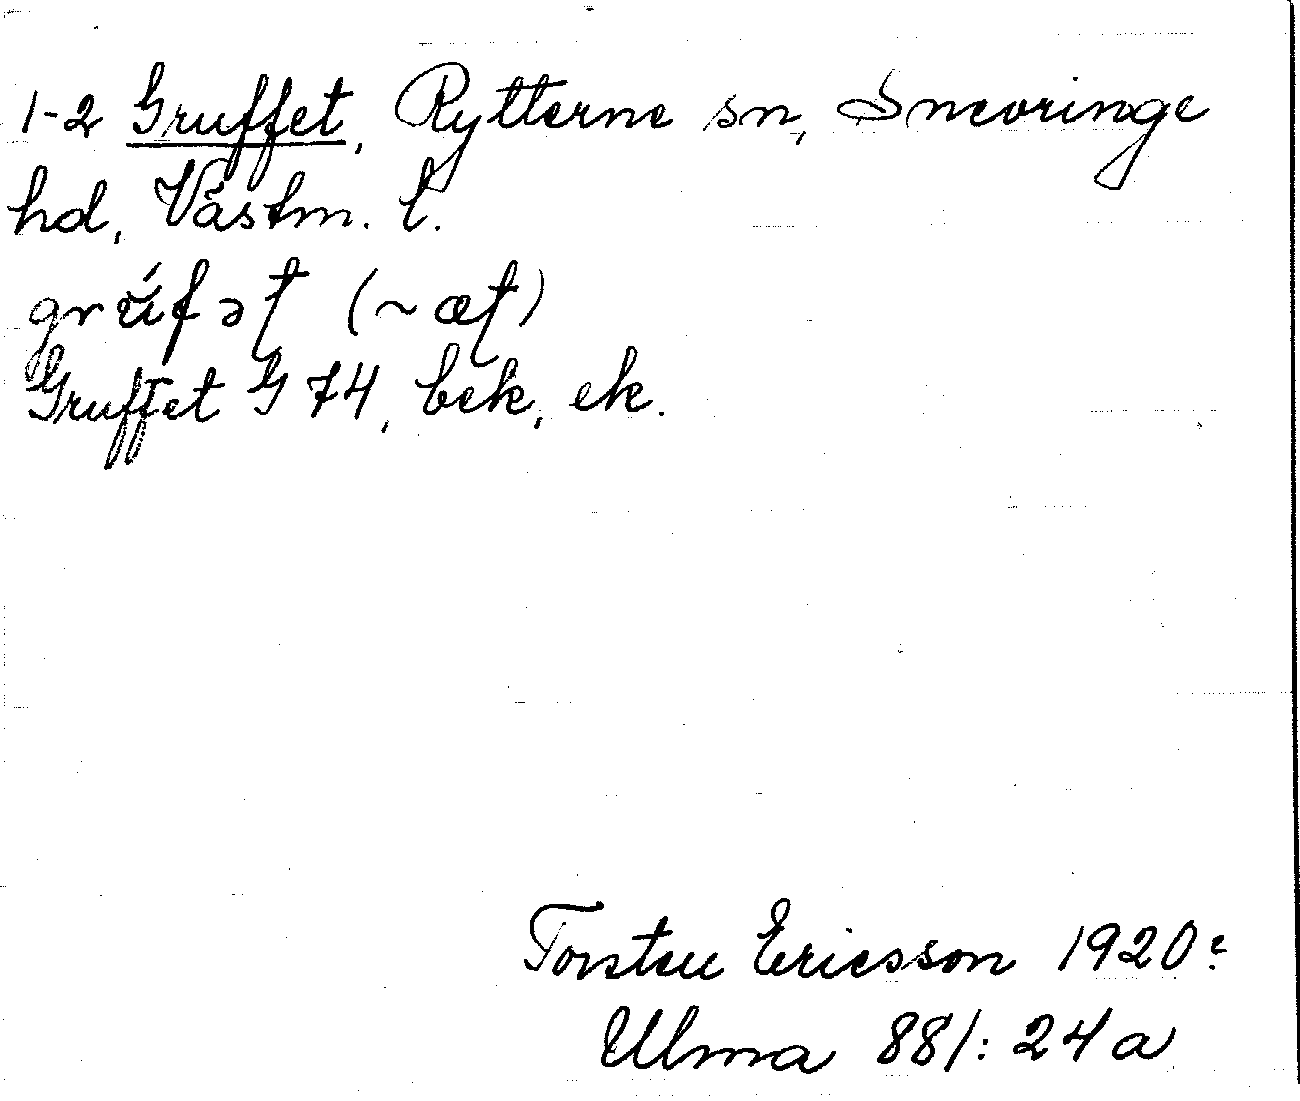 1-2 Gruffet, Rytterne sn, Snevringe
hd, Västm. l.
grúfət (~æt)
Gruffet G 74, bek, ek.
Torsten Ericsson 1920?
Ulma 881: 24a